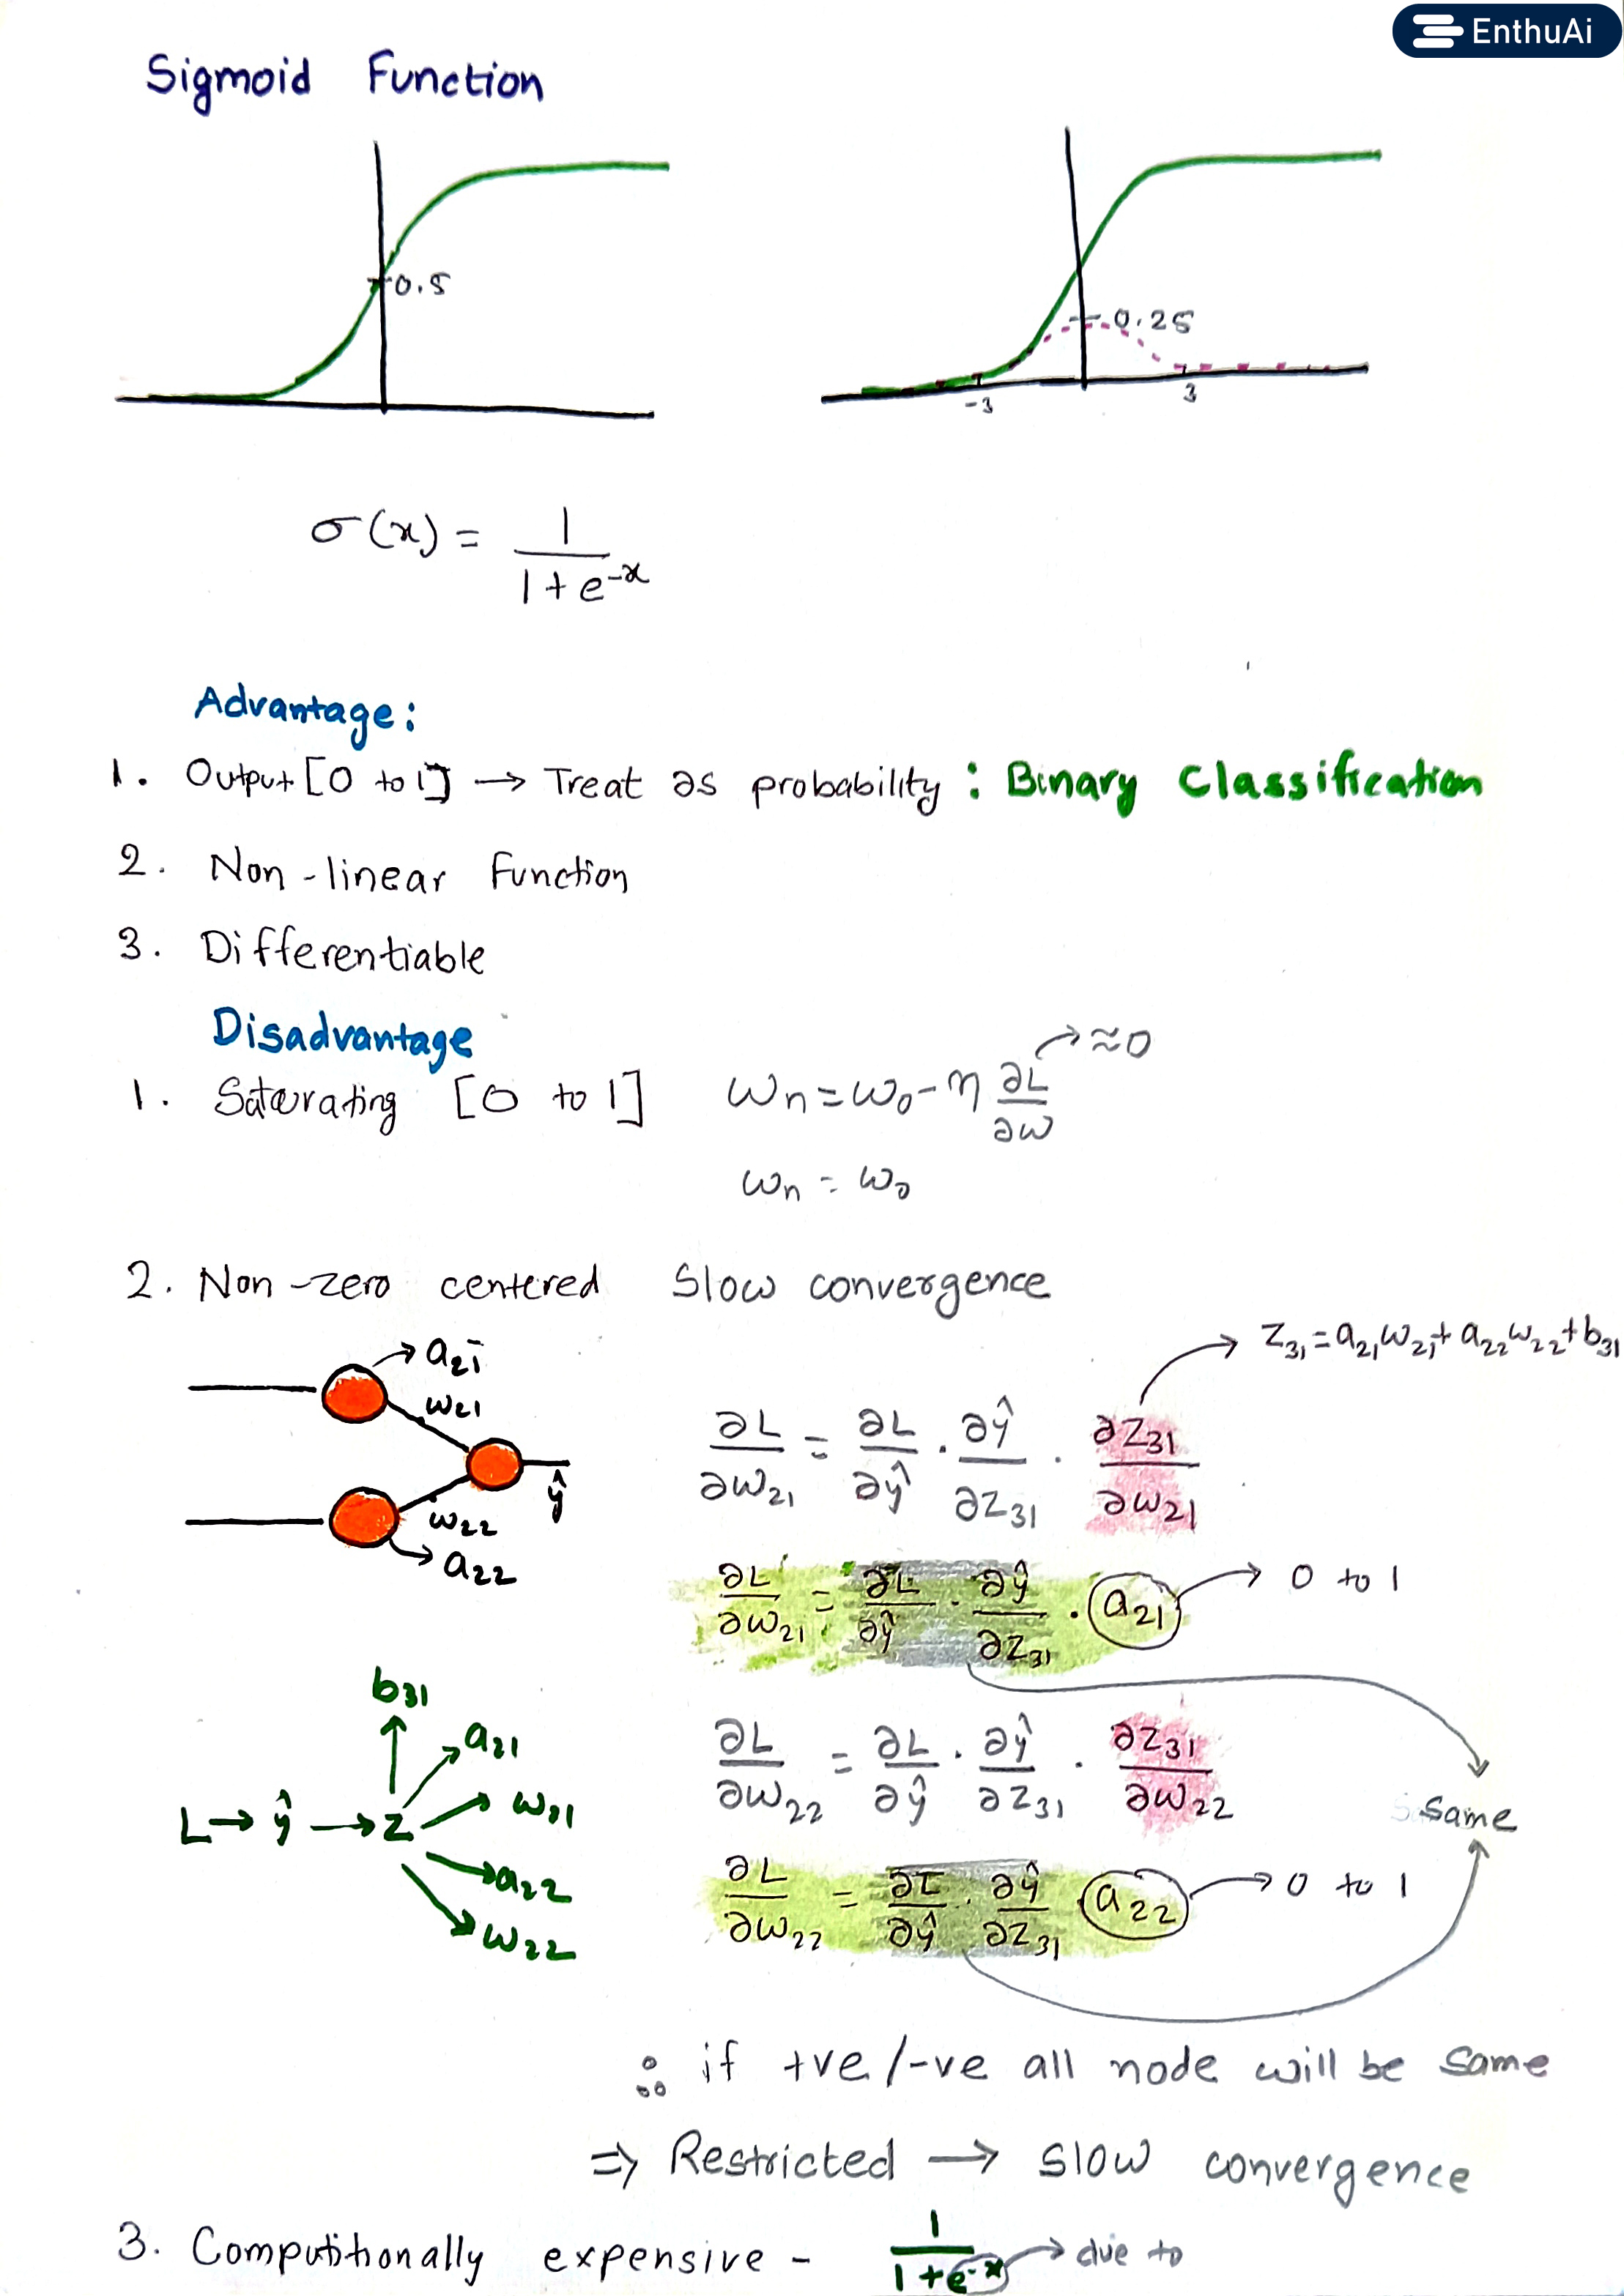 EnthuAi
Sigmoid Function
0.5
0.25
-3
3
σ(x) = 1 / (1 + e^-x)
Advantage:
1. Output [0 to 1] → Treat as probability : Binary Classification
2. Non-linear Function
3. Differentiable
Disadvantage
1. Saturating [0 to 1] Wn = Wo - η ∂L/∂W → ≈0
Wn = Wo
2. Non-zero centered Slow convergence
→ Z31 = a21 W21 + a22 W22 + b31
a21
W21
ŷ
W22
a22
∂L/∂W21 = ∂L/∂ŷ · ∂ŷ/∂Z31 · ∂Z31/∂W21
∂L/∂W21 = ∂L/∂ŷ · ∂ŷ/∂Z31 · a21 → 0 to 1
b31
a21
L → ŷ → Z W21
a22
W22
∂L/∂W22 = ∂L/∂ŷ · ∂ŷ/∂Z31 · ∂Z31/∂W22
Same
∂L/∂W22 = ∂L/∂ŷ · ∂ŷ/∂Z31 · a22 → 0 to 1
∴ if +ve/-ve all node will be same
⇒ Restricted → slow convergence
3. Computitionally expensive - 1 / (1 + e^-x) → due to